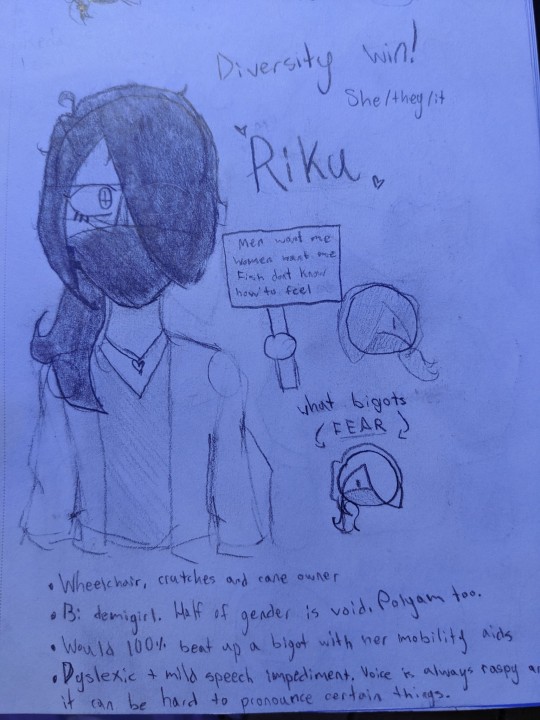 Diversity win!
She/they/it
Riku
Men want me
Women want me
Fish don't know
how to feel
what bigots
FEAR
• Wheelchair, crutches and cane owner
• Bi demigirl. Half of gender is void. Polyam too.
• Would 100% beat up a bigot with her mobility aids
• Dyslexic + mild speech impediment. Voice is always raspy an
it can be hard to pronounce certain things.